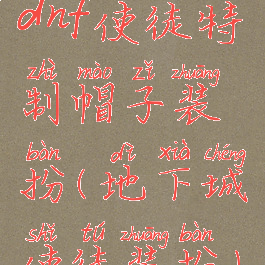 dnf使徒特
zhì mào zǐ zhuāng
制帽子装
bàn dì xià chéng
扮(地下城
shǐ tú zhuāng bàn
使徒装扮)